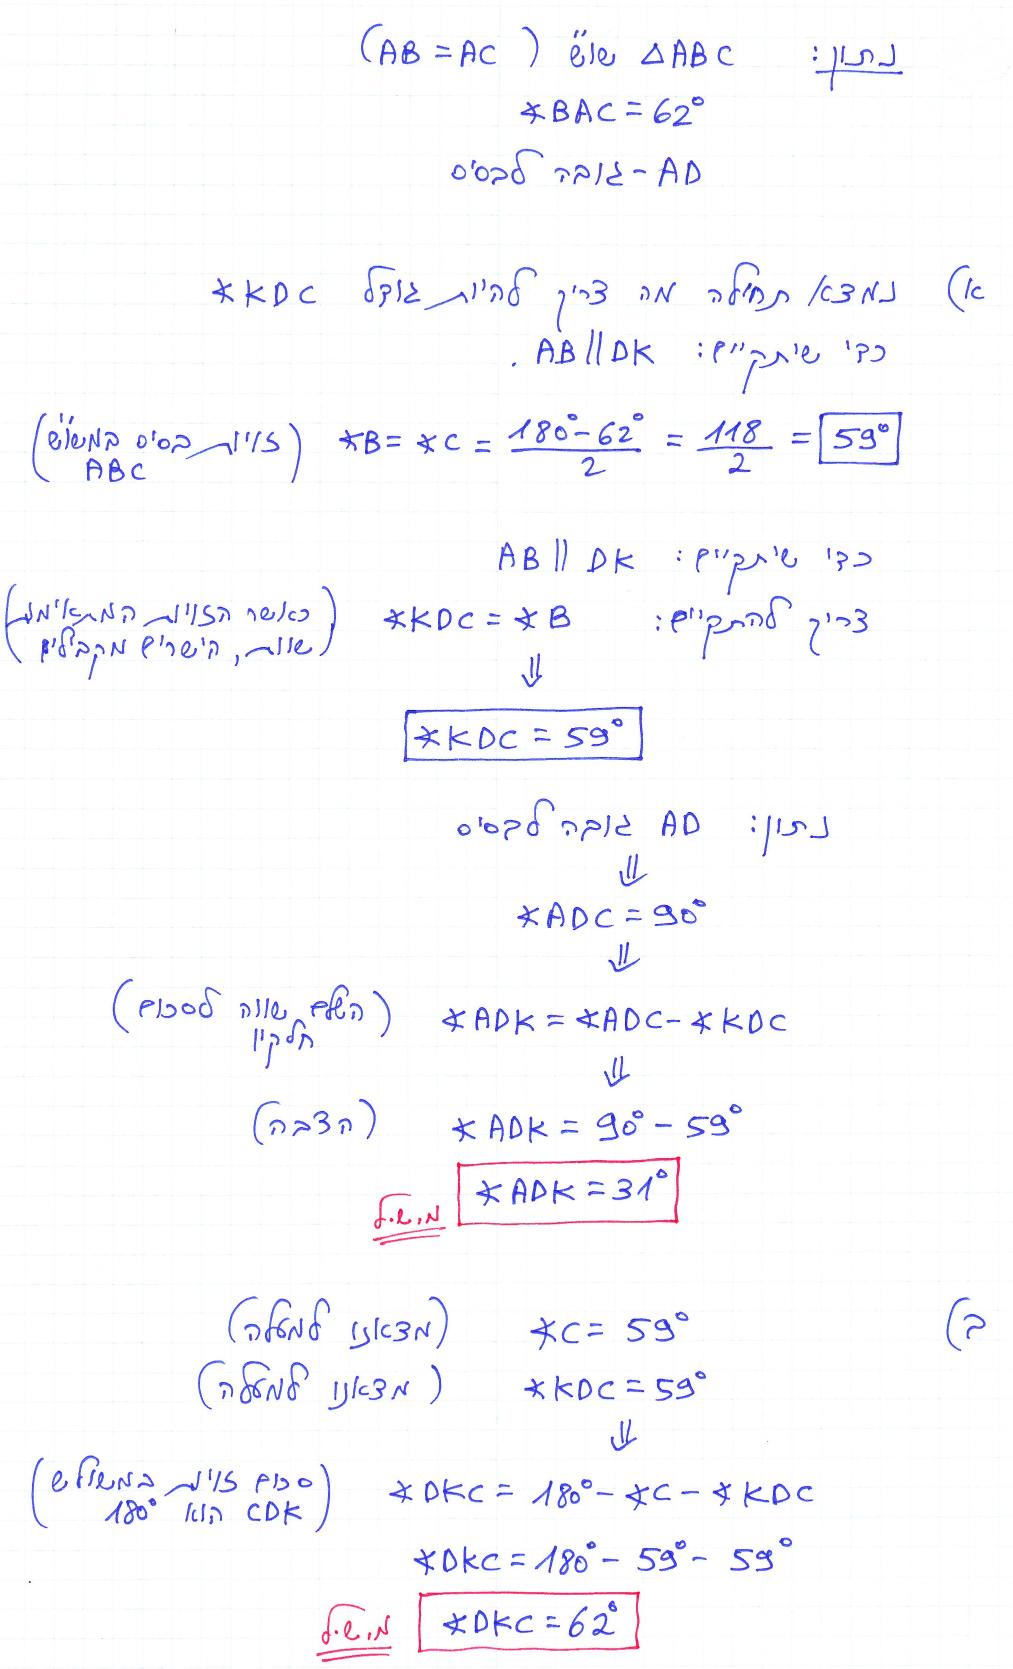 נתון: ΔABC שו"ש (AB = AC)
∢BAC = 62°
AD - גובה לבסיס
א) נמצא תחילה מה צריך להיות גודל ∢KDC
כדי שיתקיים: AB || DK .
∢B = ∢C = (180° - 62°)/2 = 118/2 = 59° (זויות בסיס במשו"ש ABC)
כדי שיתקיים: AB || DK
צריך להתקיים: ∢KDC = ∢B (כאשר הזויות המתאימות שוות, הישרים מקבילים)
⇓
∢KDC = 59°
נתון: AD גובה לבסיס
⇓
∢ADC = 90°
⇓
∢ADK = ∢ADC - ∢KDC (השלם שווה לסכום חלקיו)
⇓
∢ADK = 90° - 59° (הצבה)
∢ADK = 31° מ.ש.ל
ב) ∢C = 59° (מצאנו למעלה)
∢KDC = 59° (מצאנו למעלה)
⇓
∢DKC = 180° - ∢C - ∢KDC (סכום זויות במשולש CDK הוא 180°)
∢DKC = 180° - 59° - 59°
∢DKC = 62° מ.ש.ל